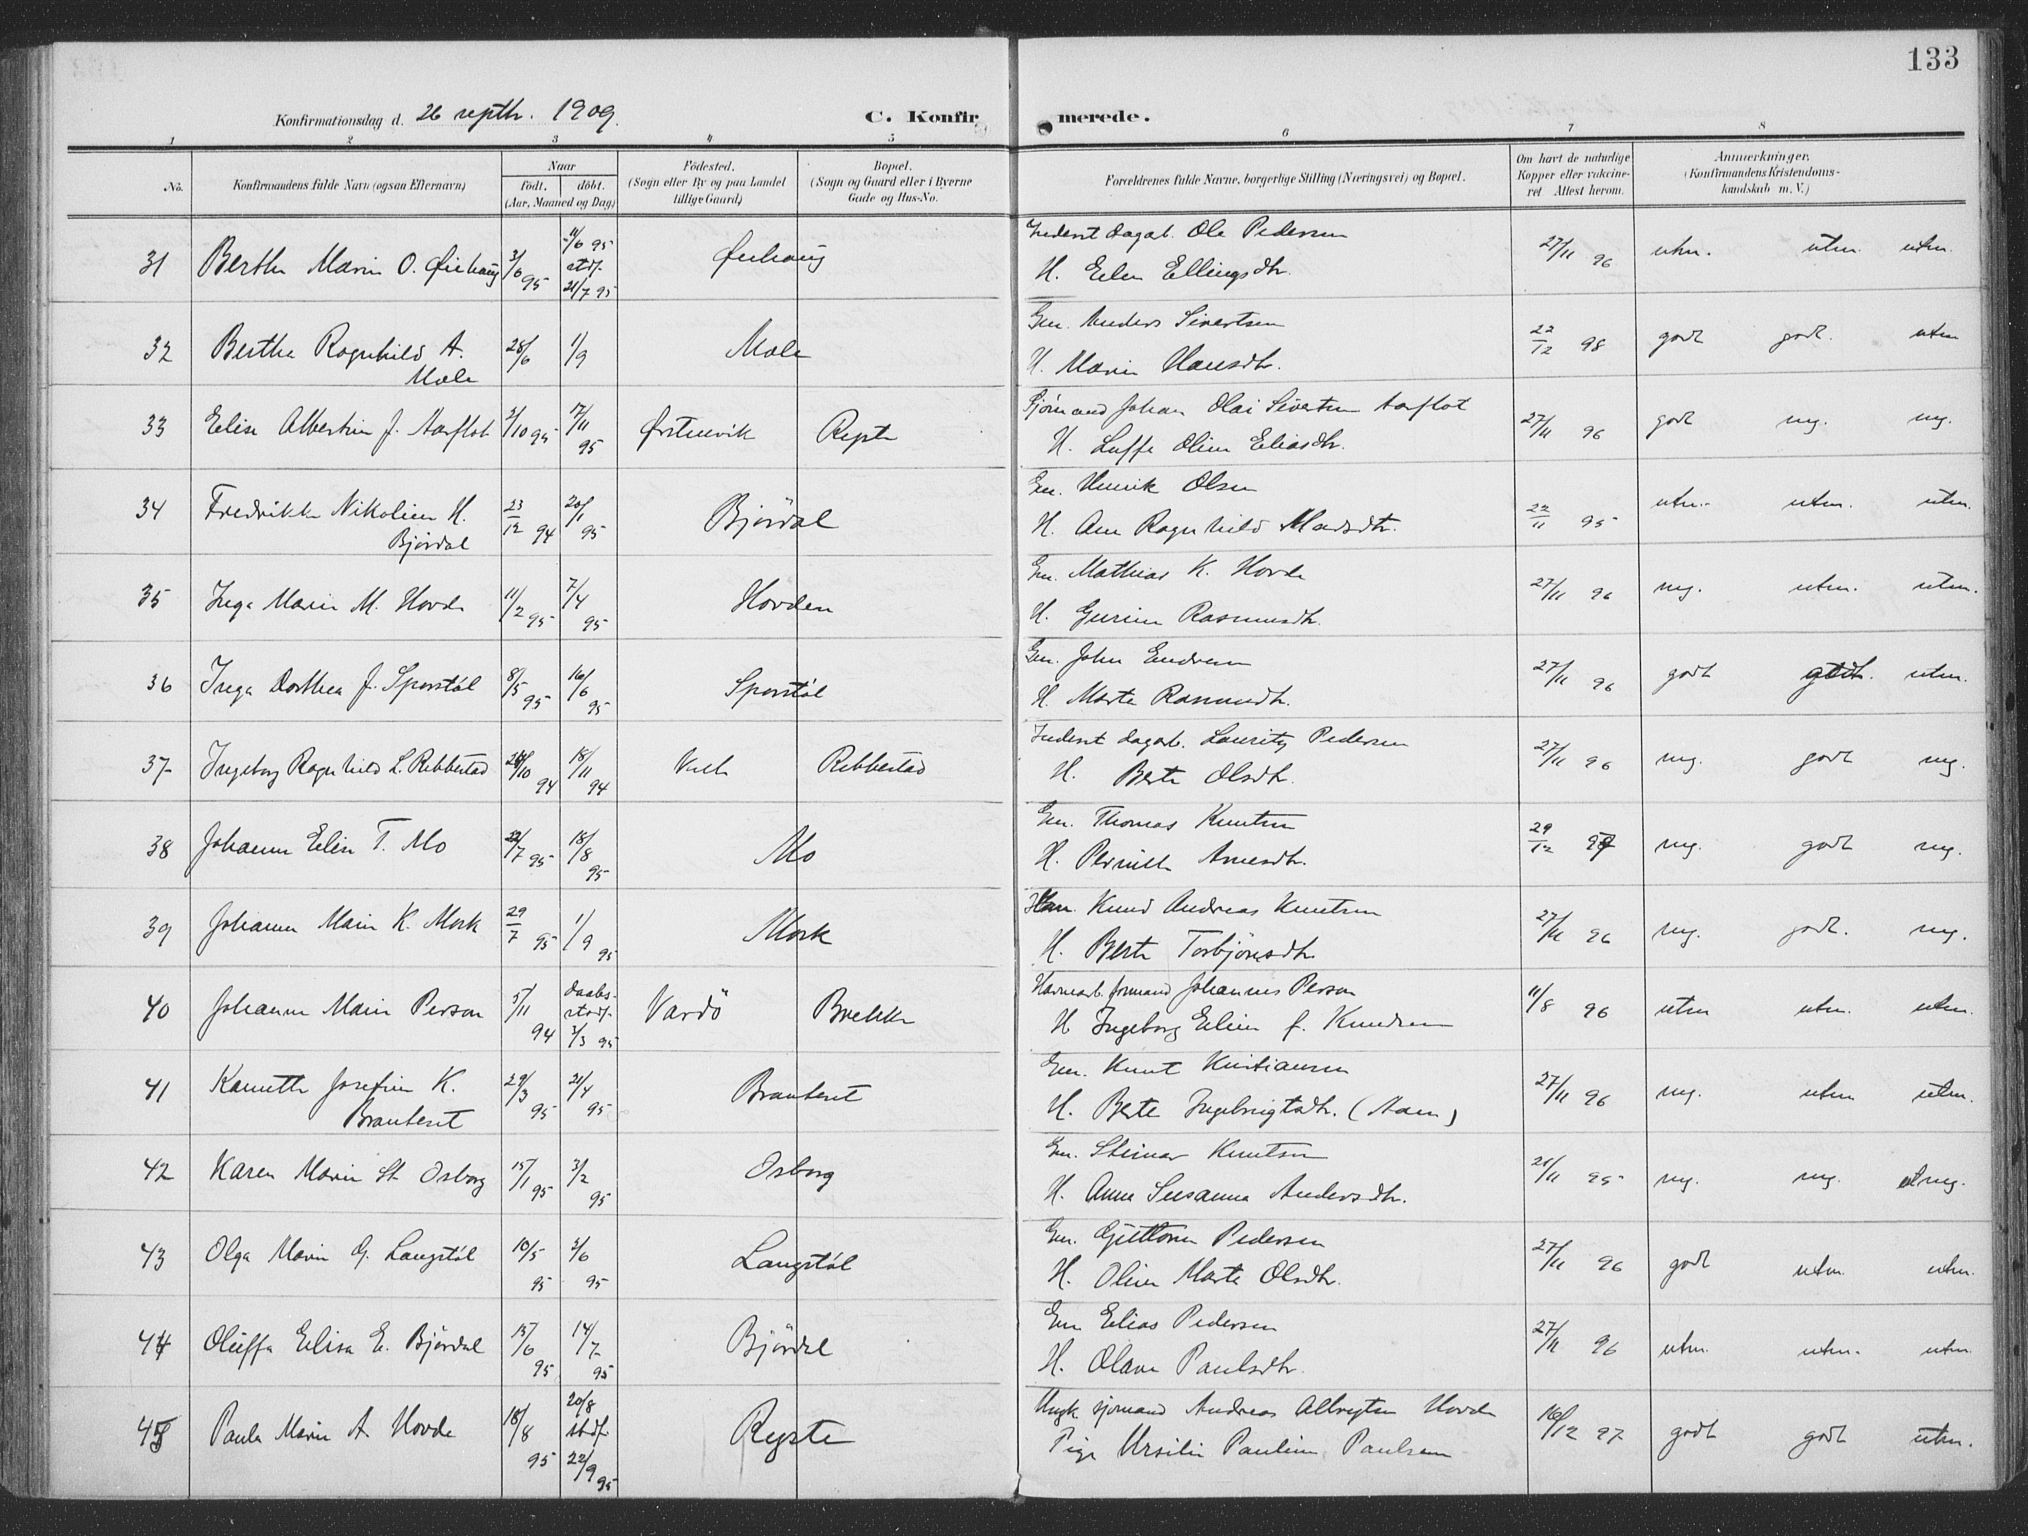 133
Konfirmationsdag d. 26 septbr. 1909.
C. Konfirmerede.
1 2 3 4 5 6 7 8
No.
Konfirmandens fulde Navn (ogsaa Efternavn)
Naar
født. døbt.
(Aar, Maaned og Dag)
Fødested.
(Sogn eller By og paa Landet
tillige Gaard)
Bopæl.
(Sogn og Gaard eller i Byerne
Gade og Hus-No.
Forældrenes fulde Navne, borgerlige Stilling (Næringsvei) og Bopæl.
Om havt de naturlige
Kopper eller vakcine-
ret Attest herom.
Anmerkninger.
(Konfirmandens Kristendoms-
kundskab m. V.)
31 Berthe Marie O. Øiehaug 3/6 95 11/6 95 stdf. 21/7 95 Øiehaug
Inderst dagarb. Ole Pedersen
H. Elen Ellingsdtr. 27/11 96 utm. utm. utm.
32 Berthe Ragnhild A.
Mele 28/6 1/9 Mele
Gm. Anders Sivertsen
H. Marie Hansdtr. 22/12 98 godt godt. utm
33 Elise Albertine J. Aarflot 3/10 95 17/11 95 Ørstenvik Røyste
Sjømand Johan Olai Sivertsen Aarflot
H. Luffe Oline Eliasdtr. 27/11 96 godt mg. mg.
34 Fredrikke Nikoline H.
Bjørdal 23/12 94 20/1 95 Bjørdal
Gm. Henrik Olsen
H. Ane Ragnhild Madsdtr. 22/11 95 utm. utm. utm.
35 Inga Marie M. Hovde 11/2 95 7/4 95 Hovden
Gm. Mathias K. Hovde
H. Gurine Rasmusdtr. 27/11 96 mg. utm. utm.
36 Inga Dorthea J. Sporstøl 8/5 95 16/6 95 Sporstøl
Gm. John Endresen
H. Marte Rasmusdtr. 27/11 96 godt godt. utm.
37 Ingeborg Ragnhild L. Ribbestad 28/10 94 18/11 94 Ribbestad
Inderst dagarb. Lauritz Pedersen
H. Berte Olsdtr. 27/11 96 mg. godt mg.
38 Johanne Eline T. Mo 22/7 95 18/8 95 Mo
Gm. Thomas Knutsen
H. Pernille Arnesdtr. 29/12 97 mg. godt mg.
39 Johanne Marie K. Mork 29/7 95 1/9 95 Mork
Knud Andreas Knutsen
H. Berte Torbjørnsdtr. 27/11 96 mg. godt. mg.
40 Johanne Marie Person 5/11 94 daabs- stadf. 3/3 95 Vardö Brekke
Havnearb. formand Johannes Person
H Ingeborg Eline f. Knudsen 11/8 96 utm utm. utm.
41 Kanutte Josefine K.
Brauteset 29/3 95 21/4 95 Brauteset
Gm. Knut Kristiansen
H. Berte Ingebrigtsdtr. (Aam) 27/11 96 mg. utm utm.
42 Karen Marie St. Osborg 15/1 95 3/2 95 Osborg
Gm. Steinar Knutsen
H. Anne Susanna Andersdtr. 21/11 95 mg. mg. mg.
43 Olga Marie G. Langstøl 10/5 95 3/6 95 Langstøl
Gm. Guttorm Pedersen
H. Oline Marte Olsdtr. 27/11 96 godt utm. utm.
44 Oluffa Elisa E. Bjørdal 15/6 95 14/7 95 Bjørdal
Gm Elias Pedersen
H. Olave Paulsdtr. 27/11 96 utm. utm. utm.
45 Paula Marie A Hovde 18/8 95 20/8 stdf 22/9 95 Røyste
Ungk sjømand Andreas Albrigtsen Hovde
Pige Ursilie Pauline Paulsen 16/12 97 godt godt utm.